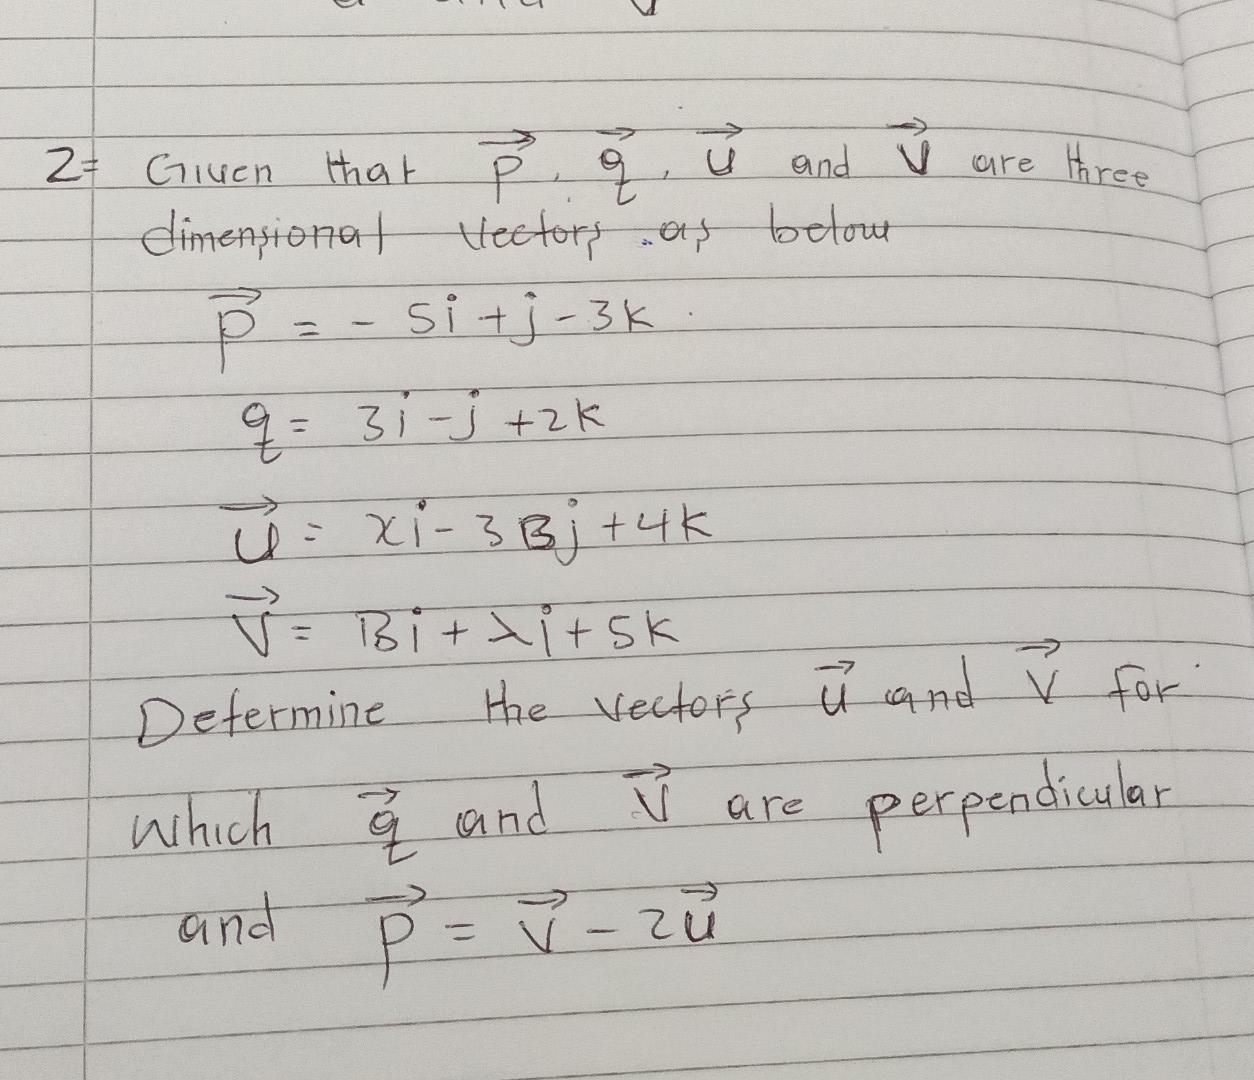 2= Given that p⃗, q⃗, u⃗ and v⃗ are three
dimensional vectors as below
p⃗ = - 5i + j - 3k
q = 3i - j + 2k
u⃗ = xi - 3Bj + 4k
v⃗ = Bi + λj + 5k
Determine the vectors u⃗ and v⃗ for
which q⃗ and v⃗ are perpendicular
and p⃗ = v⃗ - 2u⃗